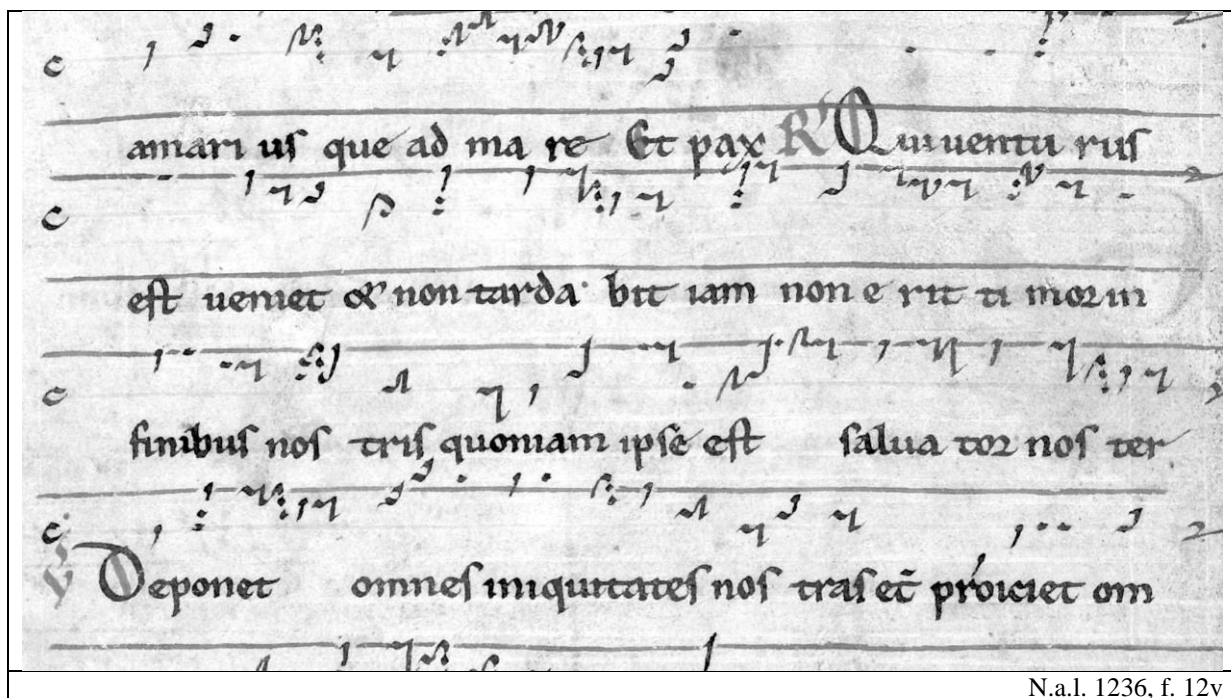 amari us que ad ma re Et pax R Qui uentu rus
est ueniet & non tarda bit iam non e rit ti mor in
finibus nos tris quoniam ipse est salua tor nos ter
V Deponet omnes iniquitates nos tras et proiciet om
N.a.l. 1236, f. 12v